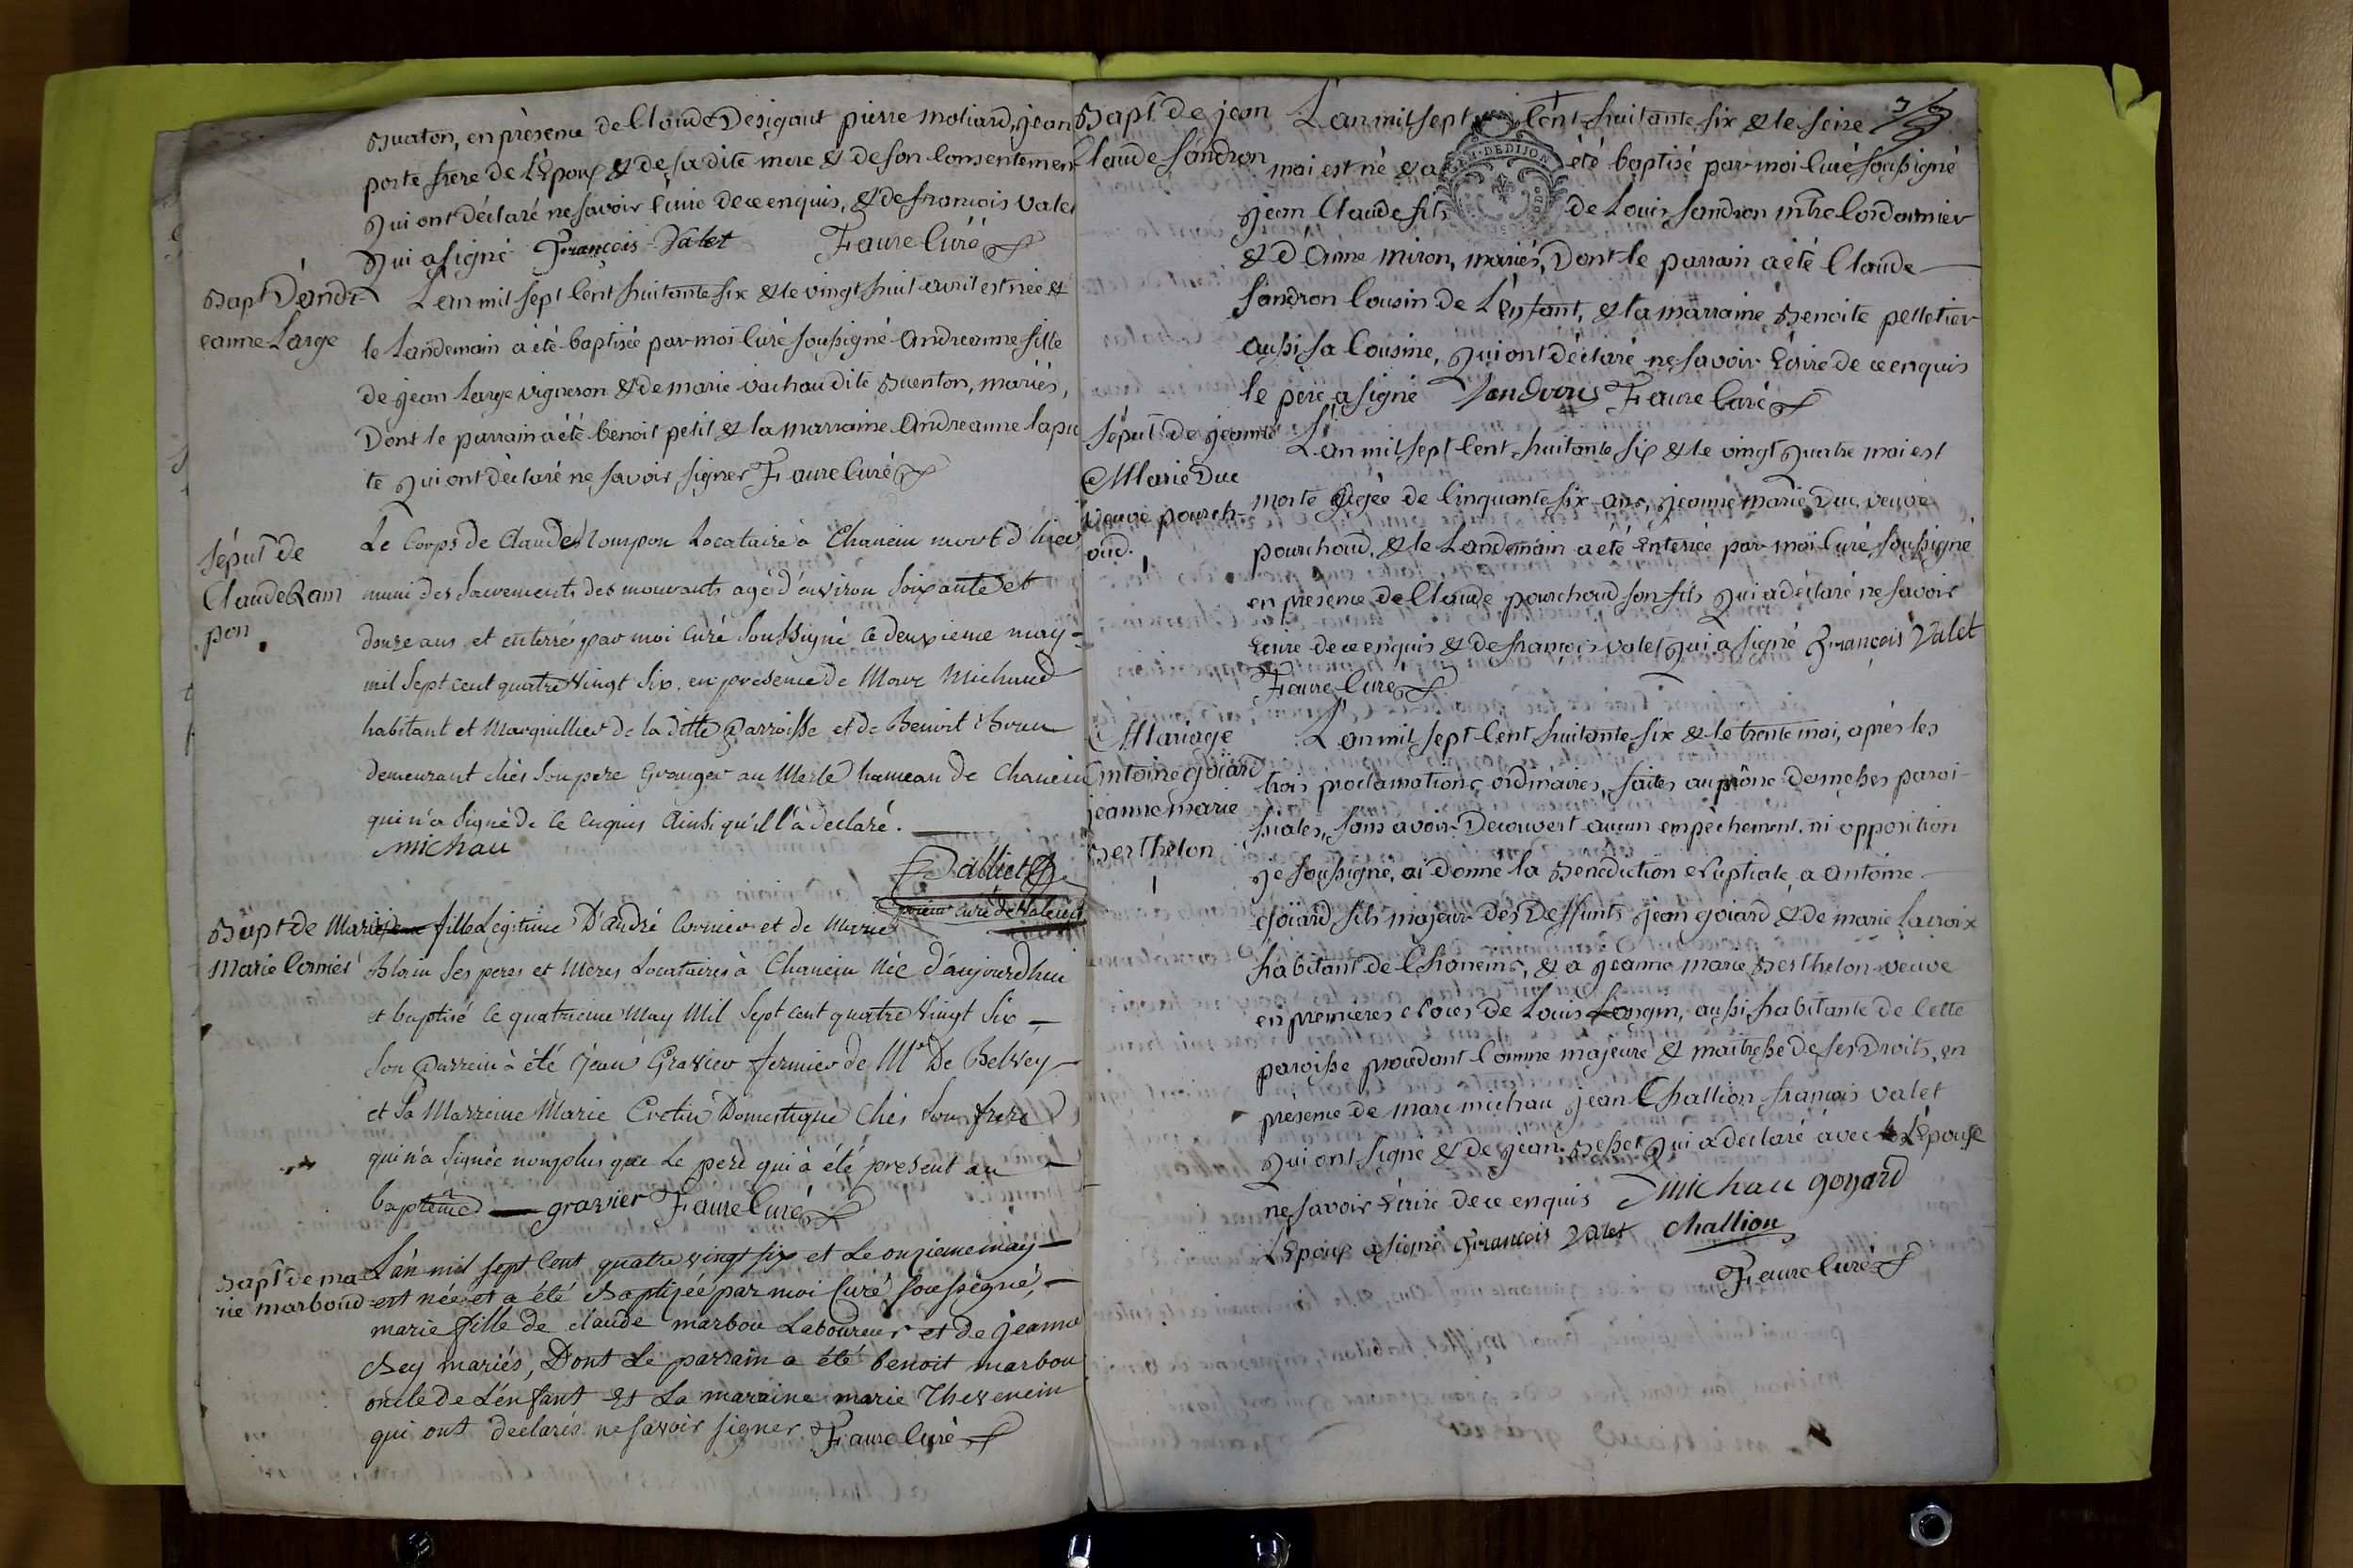 Buaton, en prèsence de Claude Desigaut pierre moliard, jean
porte frere de l'Epoux & de sa dite mere & de son Consentement
Qui ont déclaré ne savoir écrire de ce enquis, & de francois valet
Qui a signé François Valet Faure Curé
Bapt D'andr-
eanne Large
L'an mil sept Cent huitante six & le vingt huit avril est née &
le Landemain a été baptisée par moi Curé soussigné andreanne fille
de jean Large vigneron & de marie vachau dite Buenton, mariés,
Dont le parrain a été benoit petit & la marraine andreanne lapie
te Qui ont déclaré ne savoir signer Faure Curé
Sépult de
Claude Ram
pon
Le Corps de Claude Rompon Locataire à Chanein mort d'hier
muni des Sacrements des mourants agé d'environ Soixante et
douze ans et enterré par moi Curé Soussigné ce deuxieme may
mil Sept cent quatre Vingt Six. en présence de Marc Michaud
habitant et Marguillier de la ditte Parroisse et de Benoit Brun
demeurant chés Son pere Granger au Merle hameau de Chanein
qui n'a Signé de ce enquis Ainsi qu'il l'a declaré.
michau
Dalliet
prieur curé de Valeins
Bapt de
Marie Cornier
Marie fille Legitime D'andré Cornier et de Marie
Blain Ses peres et Meres Locataires à Chanein Née d'aujourdhui
et baptisé ce quatrieme May Mil Sept cent quatre Vingt Six
Son Parrein à été Jean Gravier fermier de Mr De Belvey
et Sa Marreine Marie Cretin Domestique chés Son frere
qui n'a Signée nonplus que Le pere qui à été present au
baptême gravier Faure Curé
Bapt de ma
rie marboud
L'an mil sept Cent quatre vingt six et Le onzieme may
est née et a été Baptisée par moi Curé soussigné,
marie fille de claude marbou Laboureur et de jeanne
Bey mariés, Dont Le parrain a été benoit marbou
oncle de L'enfant Et La maraine marie Thevenein
qui ont declarés ne savoir signer Faure Curé
Bapt. de jean
Claude Sandron
L'an mil sept Cent huitante six & le seize
mai est né & a été baptisé par moi Curé soussigné
GEN. DE DIJON
jean Claude fils de Louis Sandron mtre Cordonnier
& d'Anne miron, mariés, Dont le parrain a été Claude
Sandron Cousin de L'enfant, & la marraine Benoite pelletier
aussi sa Cousine, Qui ont déclaré ne savoir Ecrire de ce enquis
le père a signé Faure Curé
Sépult de jeanne
Marie Duc
veuve pourch-
oud.
L'an mil sept Cent huitante six & le vingt Quatre mai est
morte Agée de Cinquante six ans, jeanne marie Duc, veuve
pourchoud, & le Landemain a été enterrée par moi Curé soussigné
en presence de Claude pourchoud son fils Qui a déclaré ne savoir
Ecrire de ce enquis & de françois valet Qui a signé François Valet
Faure Curé
Mariage
antoine goiard
jeanne marie
Berthelon
L'an mil sept Cent huitante six & le trente mai, après les
trois proclamations ordinaires, faites au prône de messes paroi-
ssiales, sans avoir Decouvert aucun empêchement, ni opposition
je soussigné, ai donné la Bénédiction Nuptiale, a Antoine
goiard fils majeur des Deffunts jean goiard & de marie lacroix
habitant de Chaneins, & a jeanne marie Berthelon veuve
en premieres Noces de Louis Longin, aussi habitante de Cette
paroisse procédant Comme majeure & maitresse de ses Droits, en
présence de marc michau jean Challion francois valet
Qui ont signé & de jean Besset Qui a declaré avec L'Epouse
ne savoir Ecrire de ce enquis michau goyard
L'Epoux a signé François Valet challion
Faure Curé